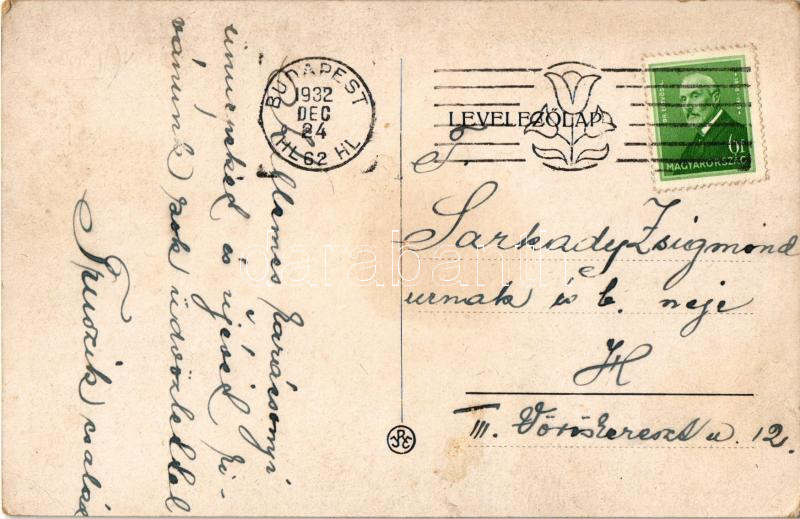 Kellemes karácsonyi
ünnepeket és újévet kí-
vánunk sok üdvözlettel
család
BUDAPEST
1932
DEC
24
62 HL
LEVELEZŐLAP
MAGYARORSZÁG
T.
Sarkady Zsigmond
urnak és b. neje
H
III. Vöröskereszt u. 12.
darabanth